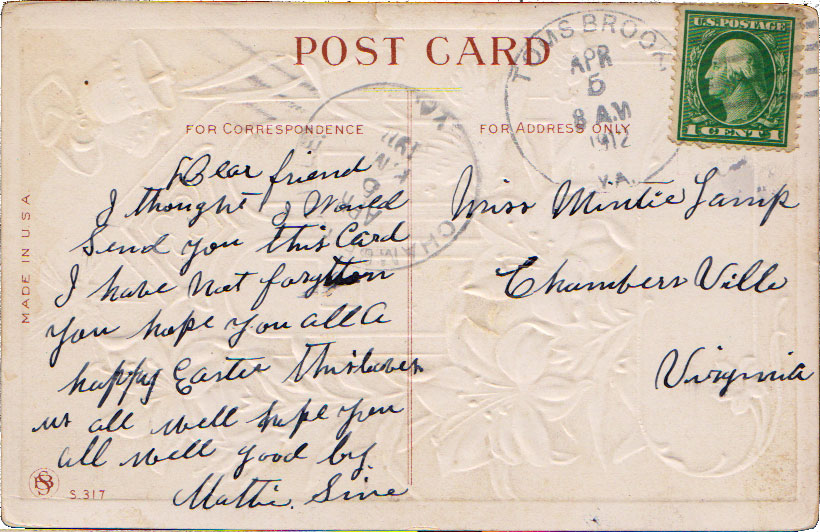 POST CARD
TOMS BROOK,
APR
5
8 AM
1912
VA.
U.S. POSTAGE
1 CENT 1
FOR CORRESPONDENCE
FOR ADDRESS ONLY
Dear friend
I thought I Would
Send you this Card
I have Not forgotten
you hope you all a
happy Easter this leaves
us all well hope you
all well good by
Mattie. Sine
Miss Mintie Lamp
Chambers Ville
Virginia
MADE IN U.S.A
S. 317